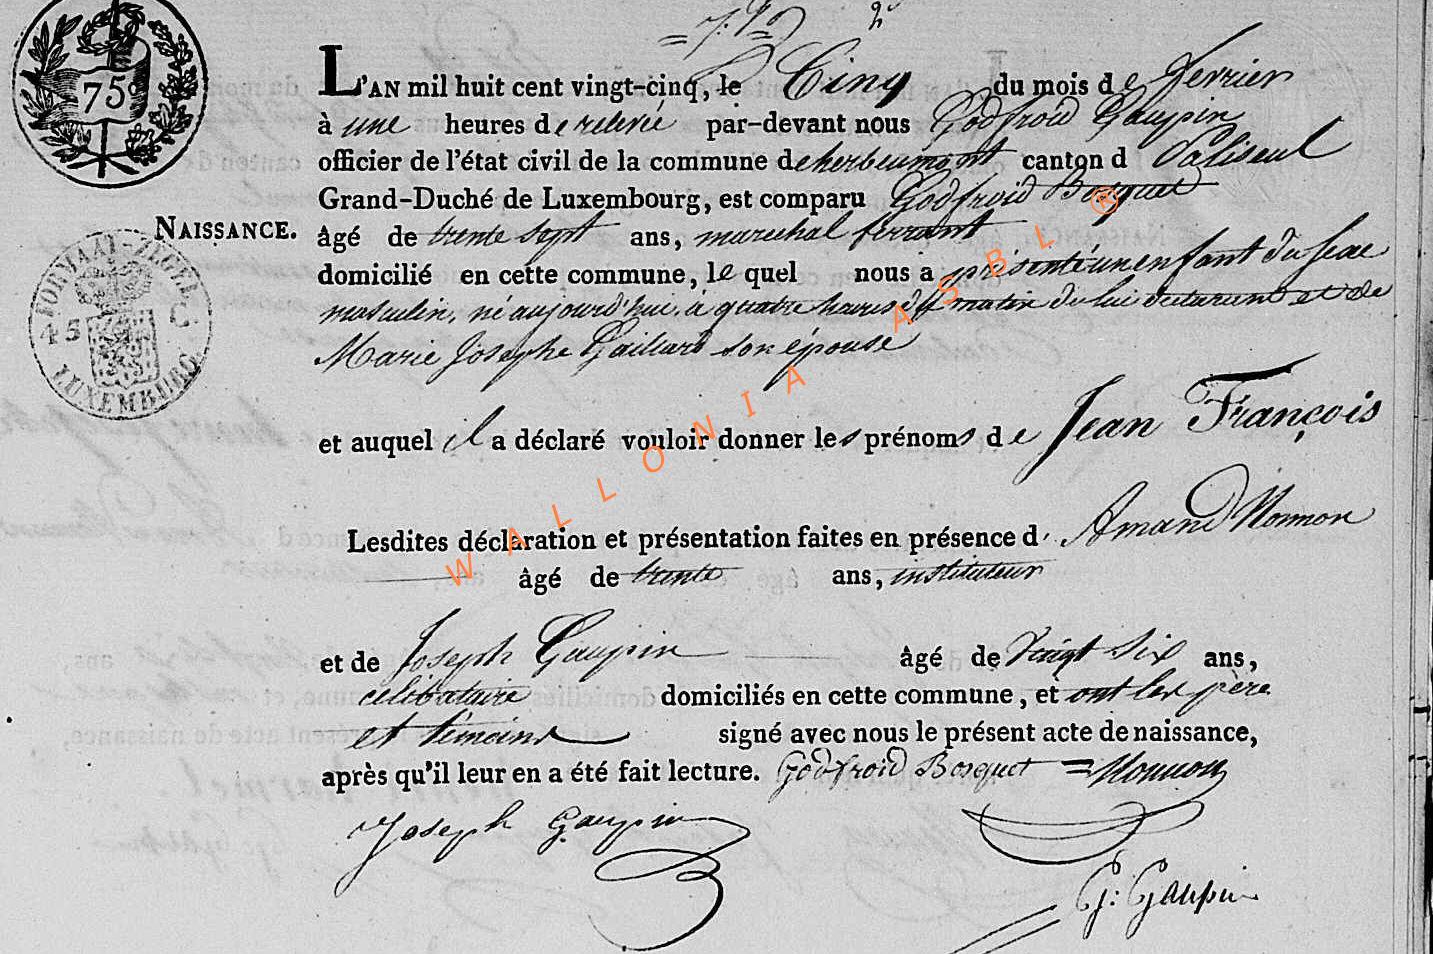 75
L'AN mil huit cent vingt-cinq, le Cinq du mois de fevrier
à une heures de relevée par-devant nous Godfroid Gaupin
officier de l'état civil de la commune de herbeumont canton d Paliseul
Grand-Duché de Luxembourg, est comparu Godfroid Bosquet
NAISSANCE.
âgé de trente sept ans, marechal ferrant
domicilié en cette commune, le quel nous a présenté un enfant du sexe
masculin, né aujourd'hui, a quatre heures du matin de lui declarant et de
Marie Josephe Gaillard son épouse
FORMAAT-ZEGEL
45 C
LUXEMBURG
et auquel il a déclaré vouloir donner les prénoms de Jean François
Lesdites déclaration et présentation faites en présence d' Amand Monnon
âgé de trente ans, instituteur
et de Joseph Gaupin âgé de Vingt Six ans,
célibataire domiciliés en cette commune, et ont les père
et témoins signé avec nous le présent acte de naissance,
après qu'il leur en a été fait lecture. Godfroid Bosquet = Monnon
Joseph Gaupin
G: Gaupin
WALLONIA ASBL ®